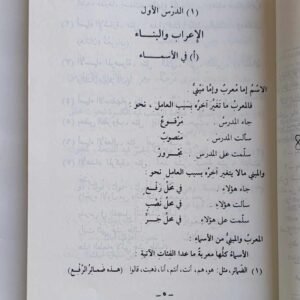 (١) الدرس الأول
الإعراب والبناء
(أ) في الأسماء
الاسم إما مُعربٌ وإما مَبْنِيٌّ
فالمعربُ ما تغيّر آخِرُه بسَبَب العامل ، نحو :
جاء المدرسُ . مَرْفوعٌ
سألت المدرسَ . مَنْصوبٌ
سلّمت على المدرسِ . مَجْرورٌ
والمبني مالا يتغير آخره بسبب العامل نحو :
جاء هؤلاءِ . في مَحَلّ رَفْعٍ
سألت هؤلاءِ . في مَحَلّ نَصْبٍ
سلّمت على هؤلاءِ . في مَحَلّ جَرٍّ
المعربُ والمبنيُّ من الأسماء :
الأسماءُ كلُّها معربةٌ ما عدا الفئات الآتية :
(١) الضمائر، مثل : هو، هم، أنت، أنتم، أنا، ذهبت، قالوا (هذه ضمائرُ الرفع)
ــ ٥ ــ